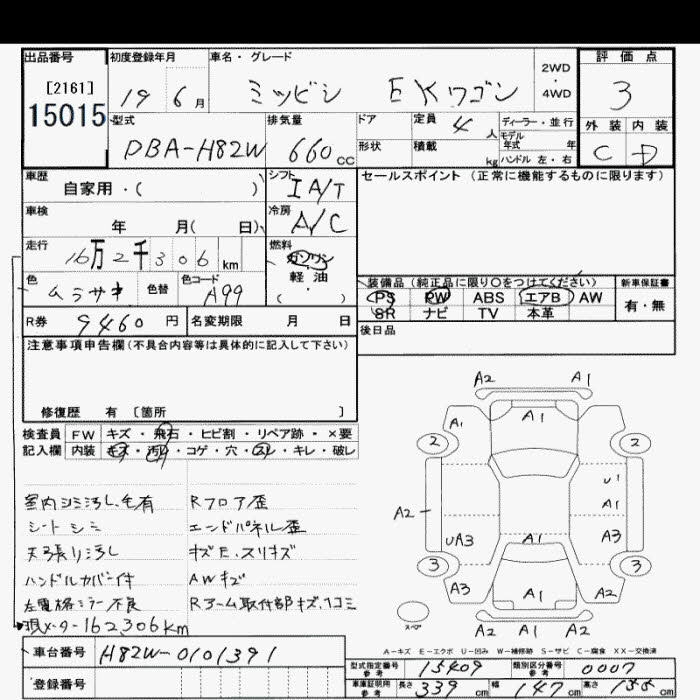 出品番号
[2161]
15015
初度登録年月
19年 6月
車名・グレード
ミツビシ EKワゴン
2WD
・
4WD
評価点
3
外装 内装
C D
型式
DBA-H82W
排気量
660 CC
ドア
形状
定員 4 人
積載 kg
ディーラー・並行
モデル年式 年
ハンドル 左・右
車歴
自家用・( )
シフト
IA/T
セールスポイント (正常に機能するものに限ります)
車検
年 月( 日)
冷房
A/C
走行
16万2千306 km
燃料
ガソリン
軽・油
( )
色
ムラサキ
色替
色コード
A99
装備品 (純正品に限り○をつけてください)
PS PW ABS エアB AW
SR ナビ TV 本革
新車保証書
有・無
R券 9460 円
名変期限 月 日
後日品
注意事項申告欄(不具合内容等は具体的に記入して下さい)
修復歴 有 〔箇所 〕
検査員 FW キズ・飛石・ヒビ割・リペア跡・×要
記入欄 内装 キズ・汚れ・コゲ・穴・スレ・キレ・破し
室内シミ汚し、毛有
シートシミ
天張り汚し
ハンドルカバー付
左電格ミラー不良
現メーター162306km
Rフロア歪
エンドパネル歪
キズE、スリキズ
AWキズ
Rアーム取付部キズ、凹ミ
A2 A1
A1 A1
2 2
U1
A1
A2
UA3 A1 A3
3 3
A3 A1 A2
A2 A1 A2
スペア
A-キズ E-エクボ U-凹み W-補修跡 S-サビ C-腐食 XX-交換済
車台番号 H82W-0101391
登録番号
型式指定番号 参考 15409
類別区分番号 参考 0007
車庫証明用 参考 長さ 339 cm 幅 147 cm 高さ 155 cm